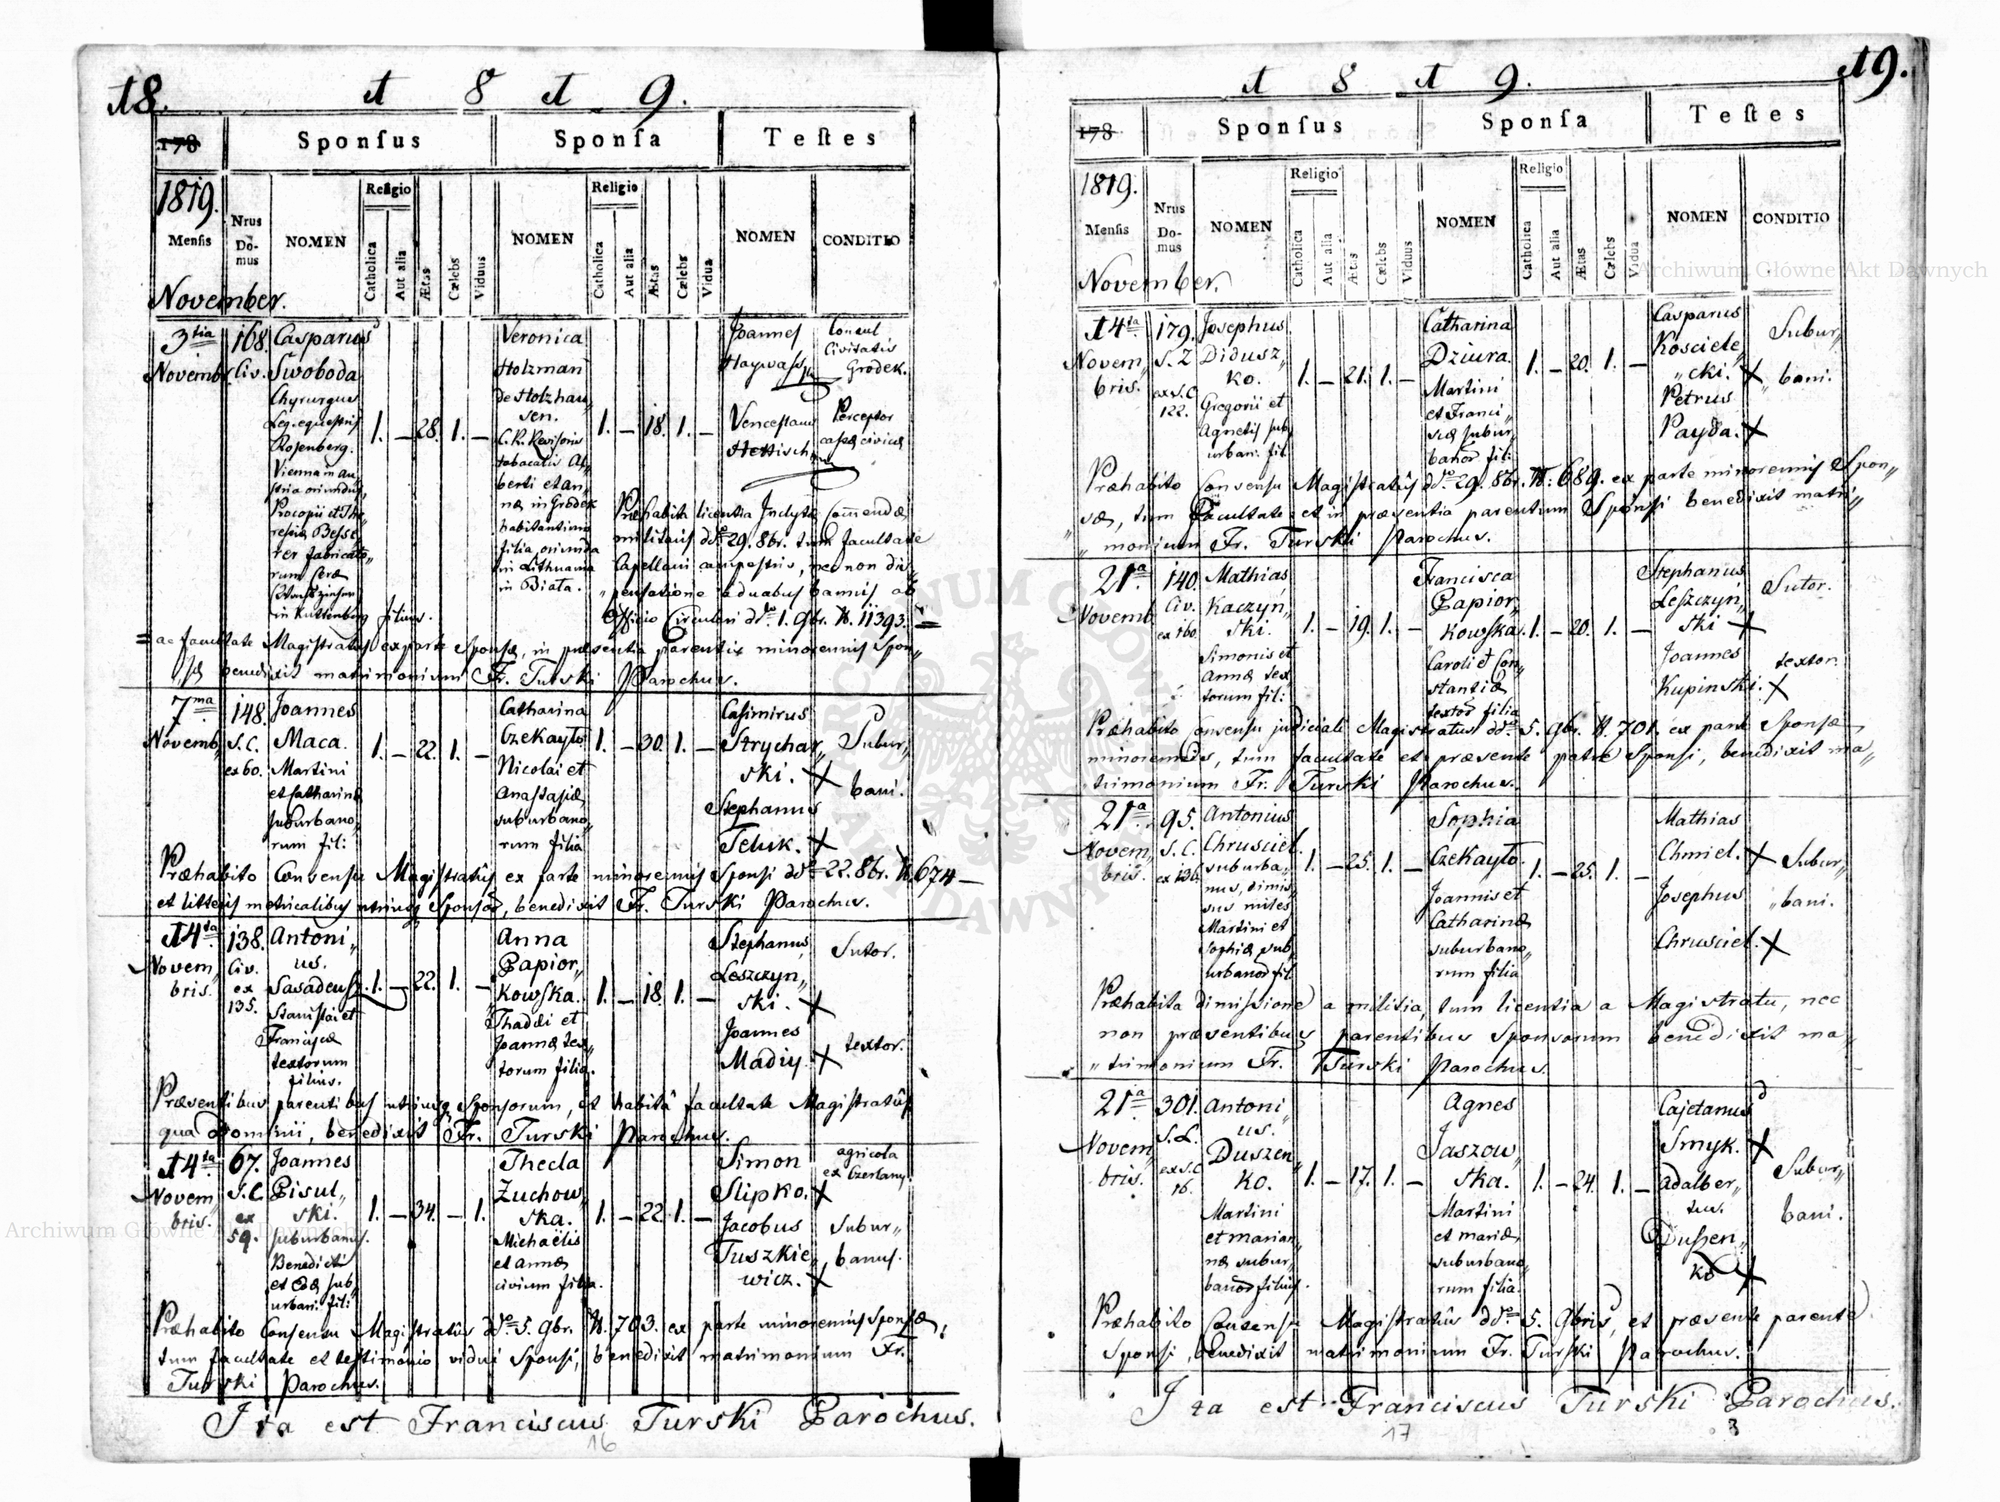 18.
1 8 1 9.
178
Sponſus
Sponſa
Teſtes
1819.
Menſis
Nrus Domus
NOMEN
Religio
Catholica
Aut alia
Ætas
Cælebs
Viduus
NOMEN
Religio
Catholica
Aut alia
Ætas
Cælebs
Vidua
NOMEN
CONDITIO
November.
3tia Novemb.
168. Civ.
Casparus
Swoboda
Chyrurgus
Leg. equestris
Rosenberg.
Vienna in Au„
stria oriundus,
Procopii et The„
resiæ
filius.
1. — 28. 1. —
Veronica
Holzman
de Holzhau„
sen.
C. R. Revisoris
tobacalis Al„
berti et An„
næ in Grodek
habitantium
filia, oriunda
in Lithuania
in Biała.
1. — 18. 1. —
Joannes
Haywass
Consul
Civitatis
Grodek.
Venceslaus
Hettisch
Perceptor
cassæ civicæ
Præhabita licentia Inclytæ Commendæ
militaris ddto 29. 8br. tum facultate
Capellani campestris, nec non dis„
„pensatione a duabus bannis ab
Officio Circulari ddto 1. 9br. N. 11393.
ac facultate Magistratus ex parte Sponsæ, in præsentia parentis minorennis Spon„
sæ benedixit matrimonium Fr. Turski Parochus.
7ma Novemb.
148. S.C. ex 60.
Joannes
Maca.
Martini
et Catharinæ
suburbano„
rum fil:
1. — 22. 1. —
Catharina
Czekayło
Nicolai et
Anastasiæ
suburbano„
rum filia
1. — 30. 1. —
Casimirus
Strychar„
ski. +
Stephanus
Teluk. +
Subur„
bani.
Præhabito Consensu Magistratûs ex parte minorennis Sponsi ddto 22. 8br. N. 674 —
et litteris metricalibus utriusq Sponsor, benedixit Fr. Turski Parochus.
14ta Novem„ bris.
138. Civ. ex 135.
Antoni„
us.
Sasadeusz.
Stanislai et
Franciscæ
textorum
filius.
1. — 22. 1. —
Anna
Papior„
kowska.
Thaddi et
Joannæ tex„
torum filia.
1. — 18. 1. —
Stephanus
Leszczyn„
ski. +
Joannes
Madiy. +
Sutor.
textor.
Præsentibus parentibus utriusq Sponsorum, et habitâ facultate Magistratûs
qua Dominii, benedixit Fr. Turski Parochus.
14ta Novem„ bris.
67. S.C. ex 59.
Joannes
Pisul„
ski.
suburbanus.
Benedicti
et Evæ sub„
urban: fil:
1. — 34. — 1.
Thecla
Zuchow„
ska.
Michaëlis
et Annæ
civium filia.
1. — 22. 1. —
Simon
Slipko. +
Jacobus
Tuszkie„
wicz. +
agricola
ex Czerlany.
Subur„
banus.
Præhabito Consensu Magistratûs ddto 5. 9br. N. 703. ex parte minorennis Sponsæ,
tum facultate et testimonio vidui Sponsi, benedixit matrimonium Fr.
Turski Parochus.
Ita est Franciscus Turski Parochus.
16
19.
1 8 1 9.
178
Sponſus
Sponſa
Teſtes
1819.
Menſis
Nrus Domus
NOMEN
Religio
Catholica
Aut alia
Ætas
Cælebs
Viduus
NOMEN
Religio
Catholica
Aut alia
Ætas
Cælebs
Vidua
NOMEN
CONDITIO
November.
14ta Novem„ bris.
179. S. L. ex S.C. 122.
Josephus
Didusz„
ko.
Gregorii et
Agnetis sub„
urban: fil:
1. — 21. 1. —
Catharina
Dziura.
Martini
et Franci„
scæ subur„
banor fili:
1. — 20. 1. —
Casparus
Kosciele„
„cki. +
Petrus
Payda. +
Subur„
„bani.
Præhabito Consensu Magistratûs ddto 29. 8br. N: 689. ex parte minorennis Spon„
„sæ, tum Facultate et in præsentia parentum Sponsi benedixit matri„
„monium Fr. Turski Parochus.
21a Novemb.
140. Civ. ex 160.
Mathias
Kaczyn„
ski.
Simonis et
Annæ tex„
torum fil:
1. — 19. 1. —
Francisca
Papior„
kowska.
Caroli et Con„
stantiæ
textor filia
1. — 20. 1. —
Stephanus
Leszczyn„
ski +
Joannes
Kupinski. +
Sutor.
textor.
Præhabito Consensu judiciali Magistratus ddto 5. 9br. N. 701. ex parte Sponsæ
minorennis, tum facultate et præsente patre Sponsi, benedixit ma„
trimonium Fr. Turski Parochus.
21a Novem„ bris.
95. S. C. ex 136.
Antonius
Chrusciel.
suburba„
nus, dimis„
sus miles
Martini et
Sophiæ sub„
urbanor fil:
1. — 25. 1. —
Sophia
Czekayło.
Joannis et
Catharinæ
suburbano„
rum filia
1. — 25. 1. —
Mathias
Chmiel. +
Josephus
Chrusciel. +
Subur„
„bani.
Præhabita dimissione a militia, tum licentia a Magistratu, nec
non præsentibus parentibus Sponsorum benedixit ma„
„trimonium Fr. Turski Parochus.
21a Novem„ bris.
301. S.L. ex S.C. 16.
Antoni„
us.
Duszen„
ko.
Martini
et Marian„
næ subur„
banor filius.
1. — 17. 1. —
Agnes
Jaszow„
ska.
Martini
et Mariæ
suburbano„
rum filia.
1. — 24. 1. —
Cajetanus
Smyk. +
Adalber„
tus.
Dussen„
ko +
Subur„
bani.
Præhabito Consensu Magistratûs ddto 5. 9bris, et præsente parente
Sponsi, benedixit matrimonium Fr. Turski Parochus.
Ita est Franciscus Turski Parochus.
17
Archiwum Główne Akt Dawnych
Archiwum Główne Akt Dawnych
ARCHIWUM GŁÓWNE
AKT DAWNYCH